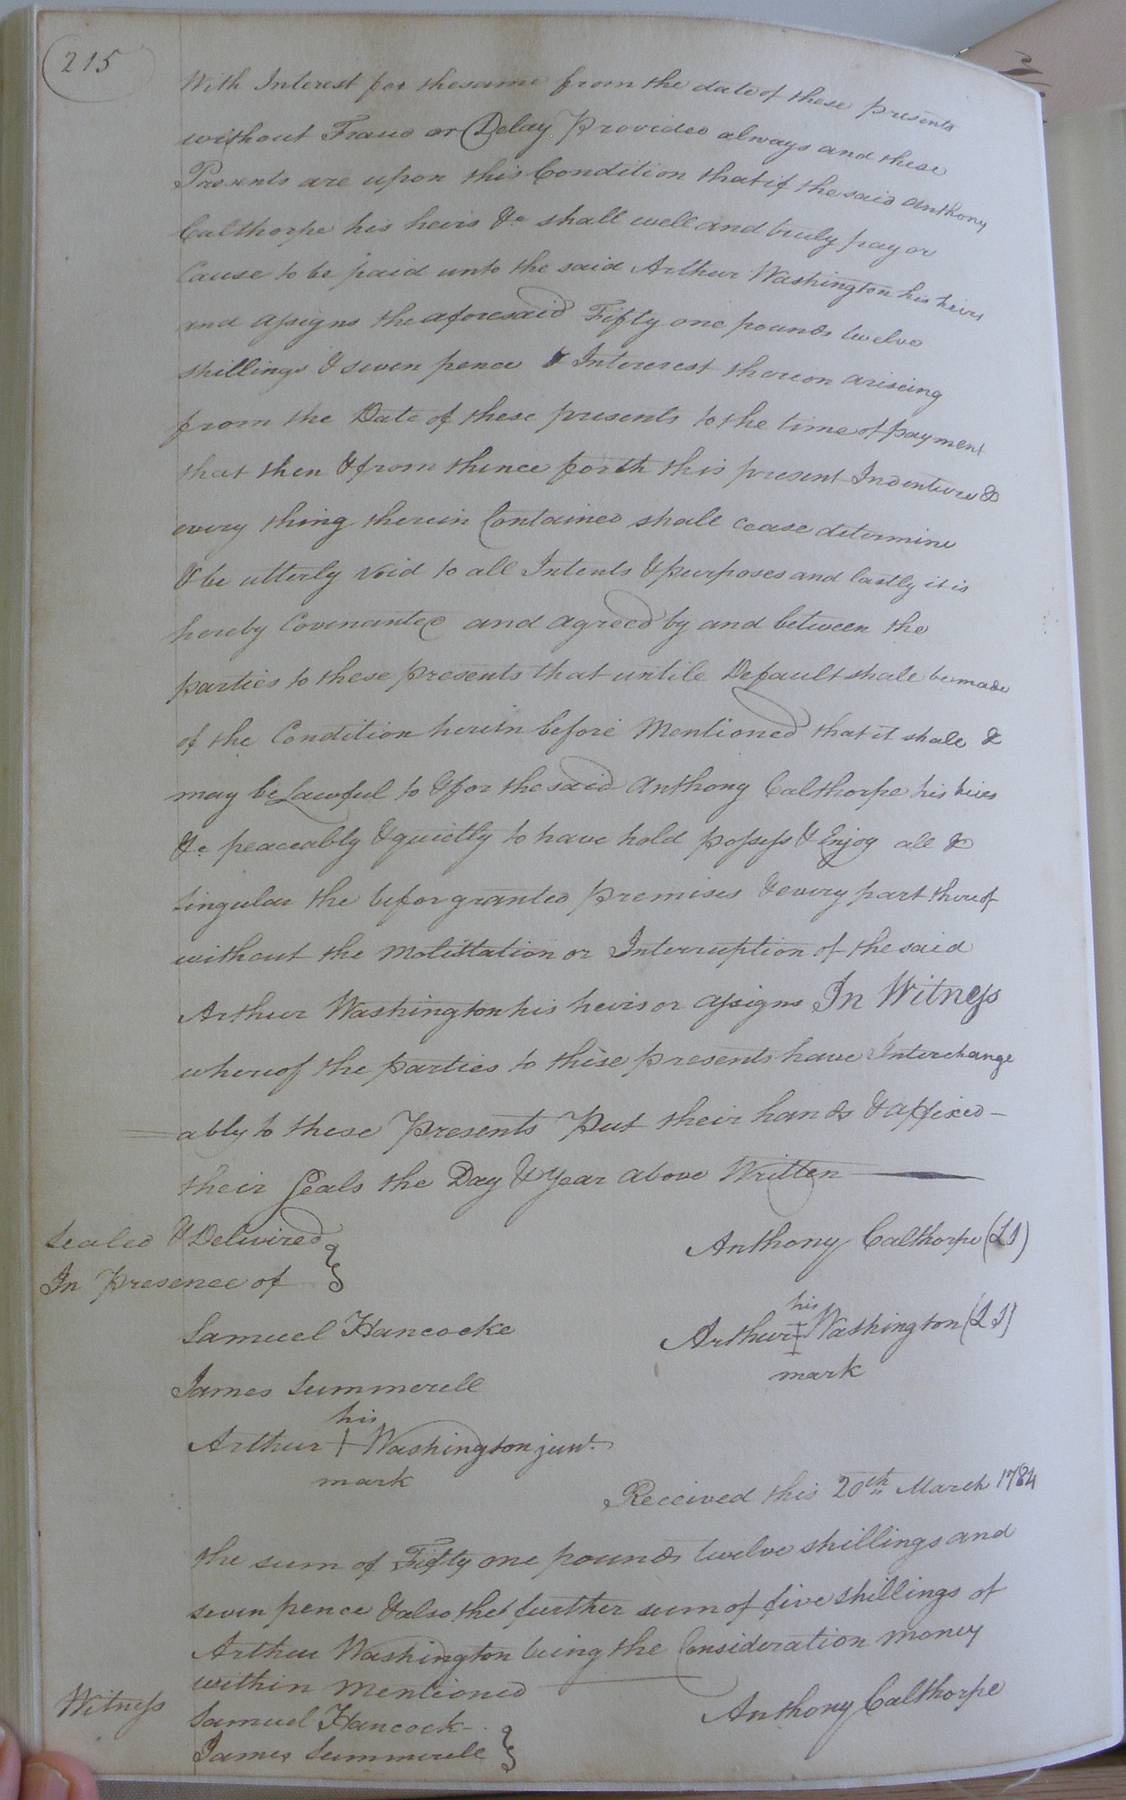 215
With Interest for thesame from the date of these presents
without Fraud or Delay Provided always and these
Presents are upon this Condition that if the said Anthony
Calthorpe his heirs &c shall well and truly pay or
Cause to be paid unto the said Arthur Washington his heirs
and assigns the aforesaid Fifty one pounds twelve
shillings & seven pence & Intererest thereon ariseing
from the Date of these presents to the time of payment
that then & from thence forth this present Indenture &
every thing therein Contained shall cease determine
& be utterly void to all Intents & purposes and lastly it is
hereby Covenanted and agreed by and between the
parties to these presents that untill Default shall be made
of the Condition herein before Mentioned that it shall &
may be Lawful to & for the said Anthony Calthorpe his hiers
&c peaceably & quietly to have hold possess & Enjoy all &
singular the befor granted premises & every part thereof
without the Molistation or Interruption of the said
Arthur Washington his heirs or assigns In Witness
whereof the parties to these presents have Interchange
ably to these Presents Put their hands & affixed
their Seals the Day & Year above Written
Sealed & Delivired
In Presence of
Anthony Calthorpe (LS)
Samuel Hancocke
his
Arthur + Washington (LS)
mark
James Summerell
his
Arthur + Washington junr.
mark
Received this 20th March 1784
the sum of Fifty one pounds twelve shillings and
seven pence & also the further sum of five shillings of
Arthur Washington being the Consideration money
within mentioned
Anthony Calthorpe
Witness
Samuel Hancock
James Summerell